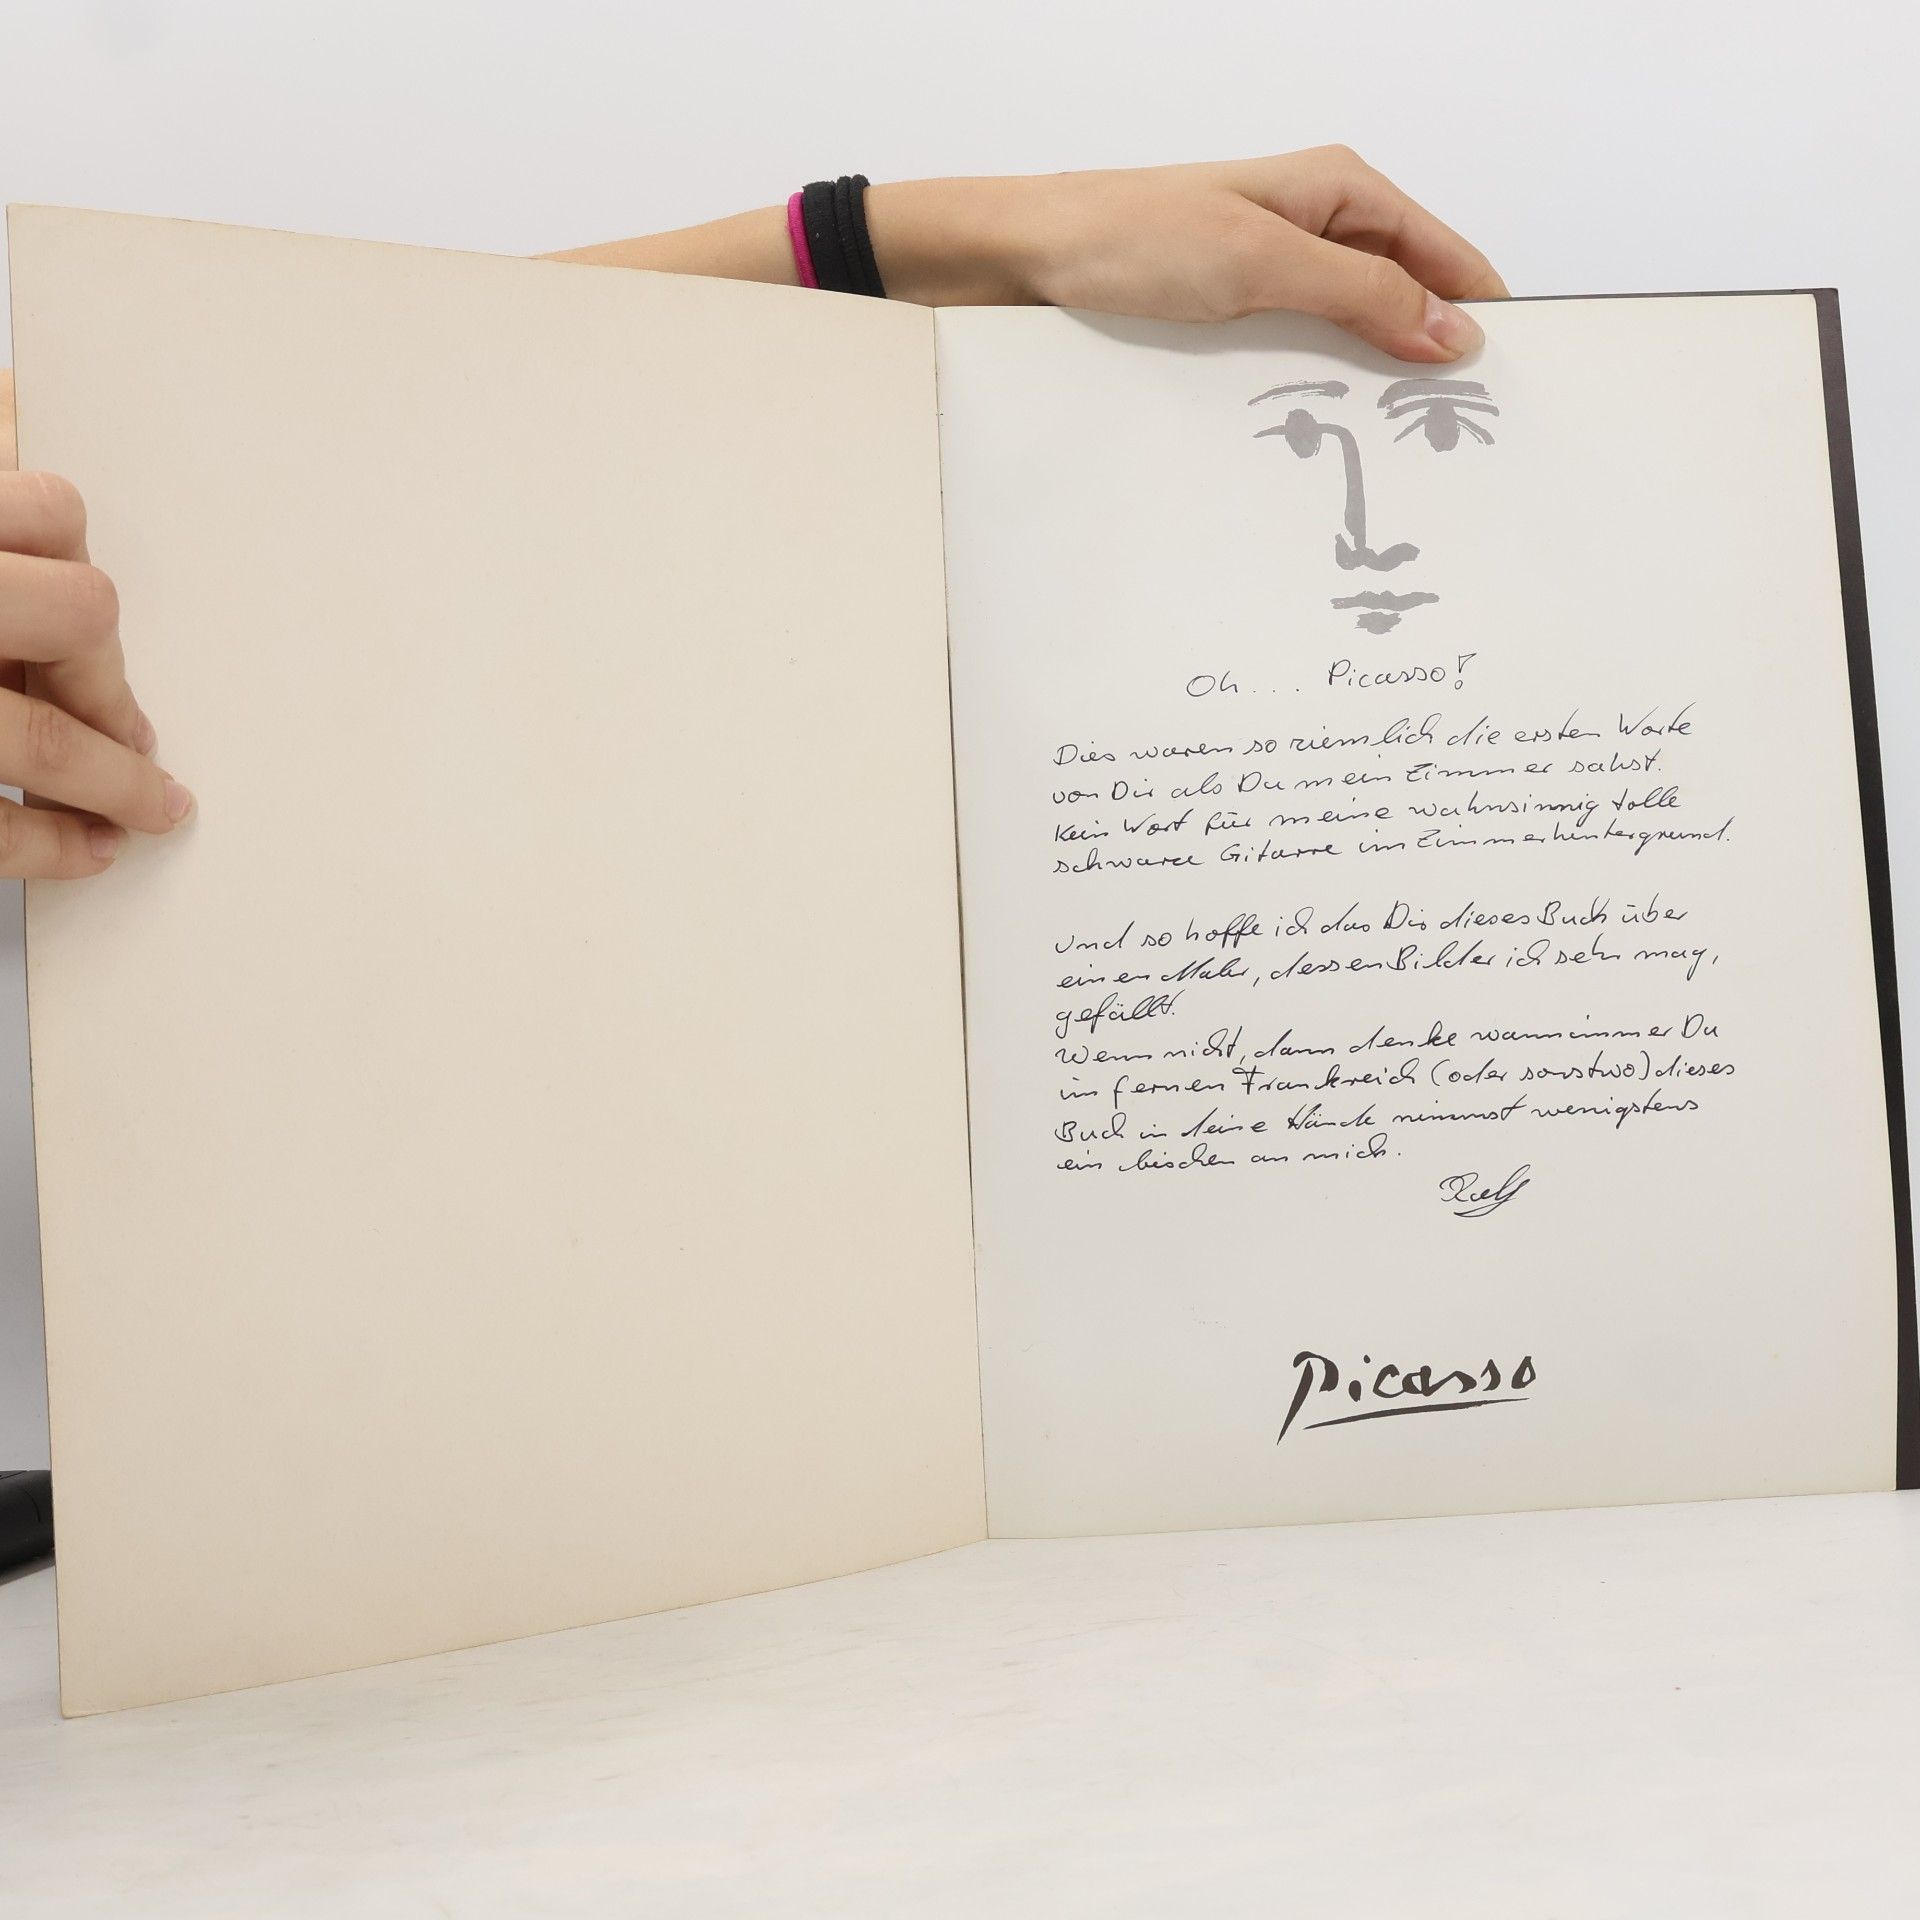 Oh... Picasso!
Dies waren so ziemlich die ersten Worte
von Dir als Du mein Zimmer sahst.
Kein Wort für meine wahnsinnig tolle
schwarze Gitarre im Zimmerhintergrund.
Und so hoffe ich das Dir dieses Buch über
einen Maler, dessen Bilder ich sehr mag,
gefällt.
Wenn nicht, dann denke wann immer Du
im fernen Frankreich (oder sonstwo) dieses
Buch in deine Hände nimmst wenigstens
ein bischen an mich.
Ralf
Picasso